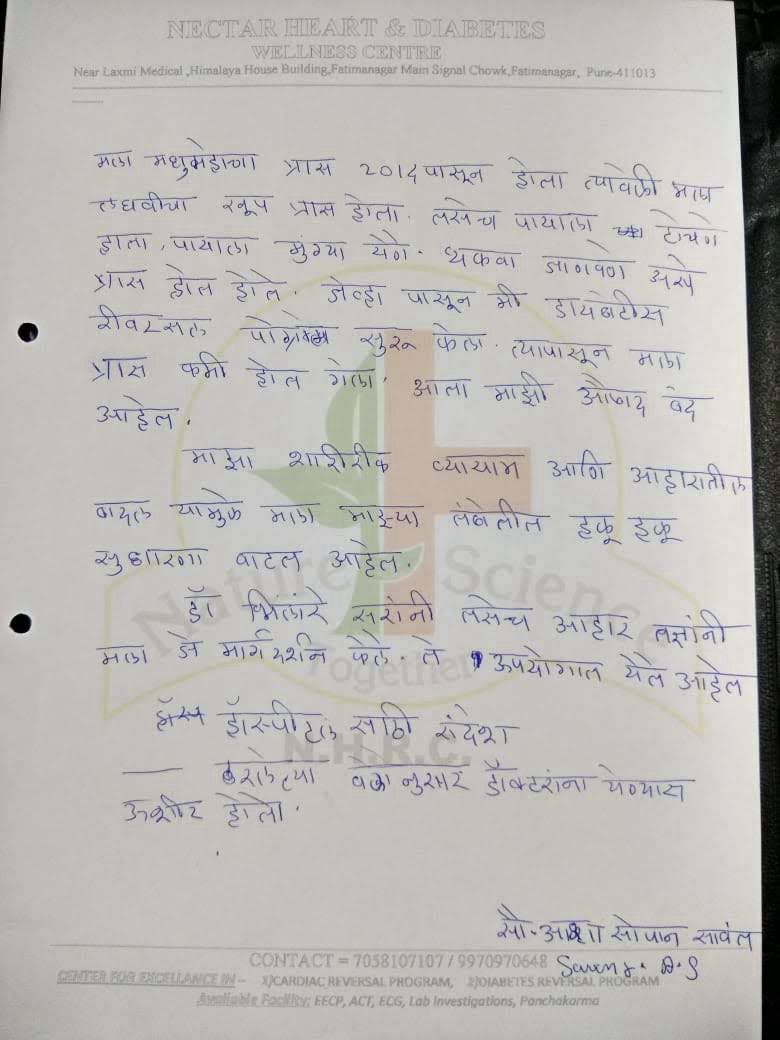 NECTAR HEART & DIABETES
WELLNESS CENTRE
Near Laxmi Medical ,Himalaya House Building,Fatimanagar Main Signal Chowk,Fatimanagar, Pune-411013
मला मधुमेहाचा त्रास 2014पासून होता त्यावेळी मला
लघवीचा खूप त्रास होता. तसेच पायाला टोचणे
होता, पायाला मुंग्या येणे. थकवा जाणवणे असे
त्रास होत होते. जेव्हा पासून मी डायबेटीस
रीवरसल सुरू केला. त्यापासून मला
त्रास कमी होत गेला. आता माझी औषद बंद
आहेत.
माझा शारीरीक व्यायाम आणि आहारातील
बादल यामुळे मला माझ्या तब्बेतीत हळू हळू
सुधारणा वाटत आहेत.
डॉ भिलारे सरांनी तसेच आहार तज्ञांनी
मला जे मार्गदर्शन केले. ते उपयोगात येत आहेत
हॉस्पीटल साठि संदेश
— ठरलेल्या वेळेनुसार डॉक्टरांना येण्यास
ऊशीर होतो.
सौ. आशा सोपान सावंत
Sawant A.S
Nature Science
Together
N.H.R.C.
CONTACT = 7058107107 / 9970970648
CENTER FOR EXCELLANCE IN – 1)CARDIAC REVERSAL PROGRAM, 2)DIABETES REVERSAL PROGRAM
Available Facility: EECP, ACT, ECG, Lab Investigations, Panchakarma